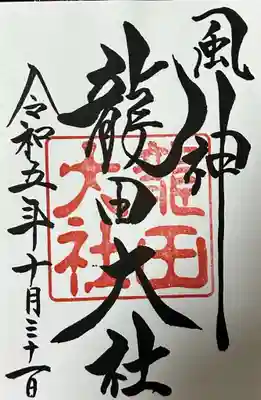 風神
龍田大社
龍田大社
令和五年十月三十一日